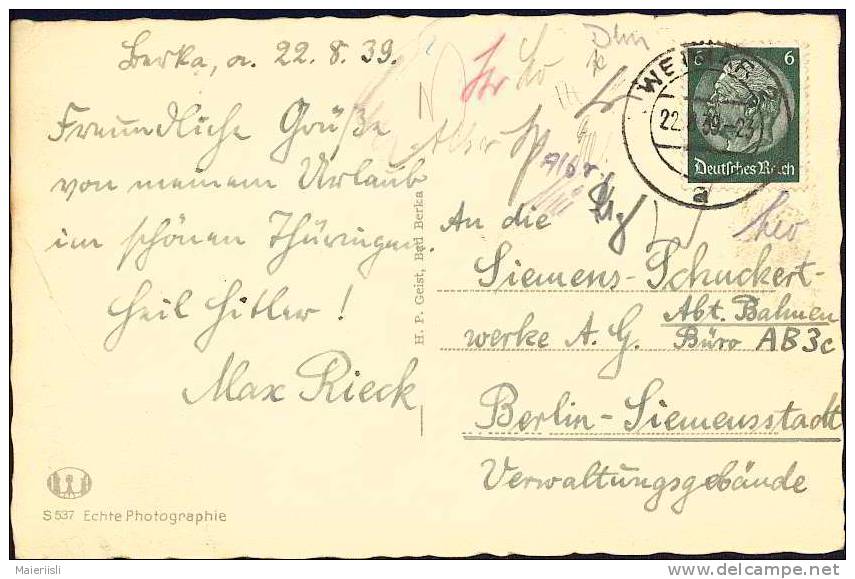 Berka, a. 22. 8. 39.
Freundliche Grüße
von meinem Urlaub
im schönen Thüringen.
Heil Hitler!
Max Rieck
S 537 Echte Photographie
H. P. Geist, Bad Berka
6 6
Deutsches Reich
22. 8. 39.-23
a
An die
Siemens-Schuckert-
werke A. G. Abt. Bahnen
Büro AB3c
Berlin-Siemensstadt
Verwaltungsgebäude
Maieriisli
delcampe.net